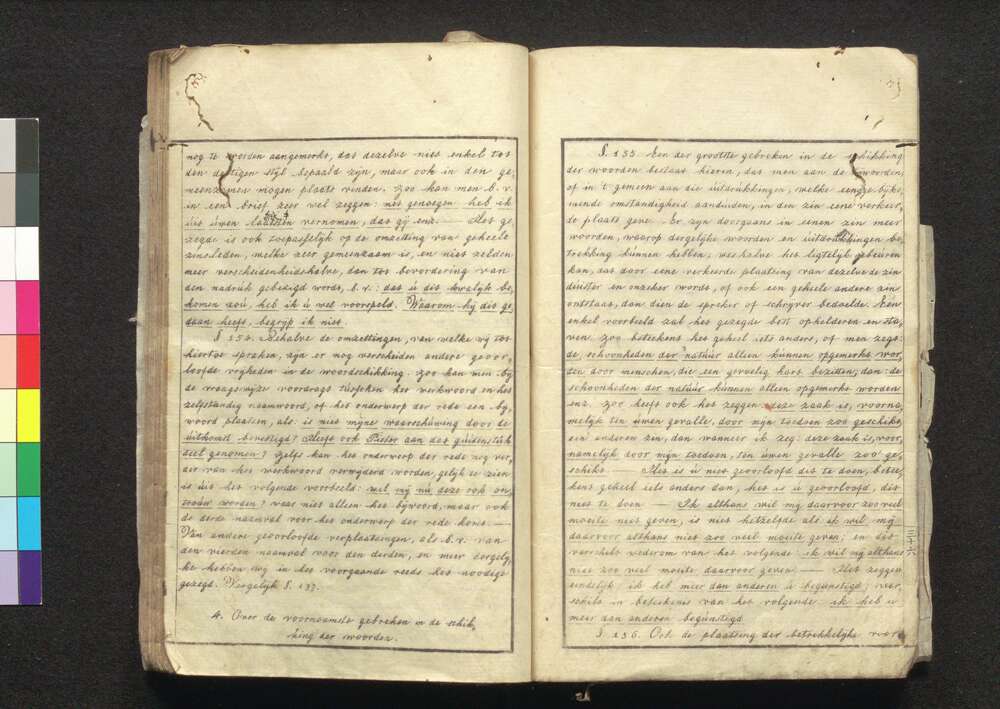 nog te worden aangemerkt, dat dezelve niet enkel tot
den deftigen styl bepaald zijn, maar ook in den ge,
meenzamen mogen plaats vinden. Zoo kan men b. v.
in een brief zeer wel zeggen: met genoegen heb ik
uit úwen laatsten vernomen, dat gij enz. — Het ge
zegde is ook toepasselyk op de omzetting van geheele
zinsleden, welke zeer gemeenzaam is, en niet zelden
meer verscheidenheidshalve, dan tot bevordering van
den nadruk gebezigd wordt, b. v.: dat ú dit kwalyk be,
komen zoú, heb ik ú wel voorspeld. Waarom hij dit ge,
daan heeft, begryp ik niet.
§ 154. Behalve de omzettingen, van welke wij tot
hiertoe spraken, zyn er nog verscheiden andere geoor,
loofde vryheden in de woordschikking. Zoo kan men bij
de vraagswyze voordragt tússchen het werkwoord en het
zelfstandig naamwoord, of het onderwerp der rede een by,
woord plaatsen, als: is niet mijne waarschúwing door de
úitkomst bevestigd? Heeft ook Pieter aan dat gúidenstúk
deel genomen? Zelfs kan het onderwerp der rede nog ver,
der van het werkwoord verwyderd worden, gelyk te zien
is úit het volgende voorbeeld: wil mij nú deze ook on,
troúw worden? waar niet alleen het bywoord, maar ook
de derde naamval voor het onderwerp der rede komt. —
Van andere geoorloofde verplaatsingen, als b. v. van
den vierden naamval voor den derden, en meer zorgelij
ke hebben wij in het voorgaande reeds het noodige
gezegd. Vergelyk §. 137.
4. Over de voornaamste gebreken in de schik,
king der woorden.
§ 155. Een der grootste gebreken in de schikking
der woorden bestaat hierin, dat men aan de bywoorden,
of in 't gemeen aan die úitdrukkingen, welke eenige byko,
mende omstandigheid aandúiden, in den zin eene verkeer,
de plaats geve. Er zyn doorgaans in eenen zin meer
woorden, waarop dergelyke woorden en úitdrúkkingen be,
trekking kúnnen hebben; weshalve het ligtelyk gebeúren
kan, dat door eene verkeerde plaatsing van dezelve de zin
dúister en onzeker wordt, of ook een geheele andere zin
ontstaat, dan deen de spreker of schryver bedoelde. Een
enkel voorbeeld zal het gezegde best ophelderen en sta,
ven. Zoo beteekent het geheel iets anders, of men zegt:
de schoonheden der natúúr alleen kúnnen opgemerkt wor,
den door menschen, die een gevoelig hart bezitten; dan: de
schoonheden der natúúr kúnnen alleen opgemerkt worden
enz. Zoo heeft ook het zeggen: deze zaak is, voorna,
melyk ten úwen gevalle, door mijn toedoen zoo geschikt,
een anderen zin, dan wanneer ik zeg: deze zaak is, voor,
namelyk door mijn toedoen, ten úwen gevalle zoo ge,
schikt. — Het is ú niet geoorloofd dit te doen, betee,
kent geheel iets anders dan, het is ú geoorloofd, dit
niet te doen — Ik althans wil mij daarvoor zoo veel
moeite niet geven, is niet hetzelfde als ik wil mij
daarvoor althans niet zoo veel moeite geven; en dit
verschilt wederom van het volgende ik wil mij althans
niet zoo veel moeite daarvoor geven. — Het zeggen
eindelyk ik heb meer dan anderen ú begúnstigd; ver,
schilt in beteekenis van het volgende ik heb ú
meer dan anderen begúnstigd.
§ 156. Ook de plaatsing der betrekkelyke voor,
三十六